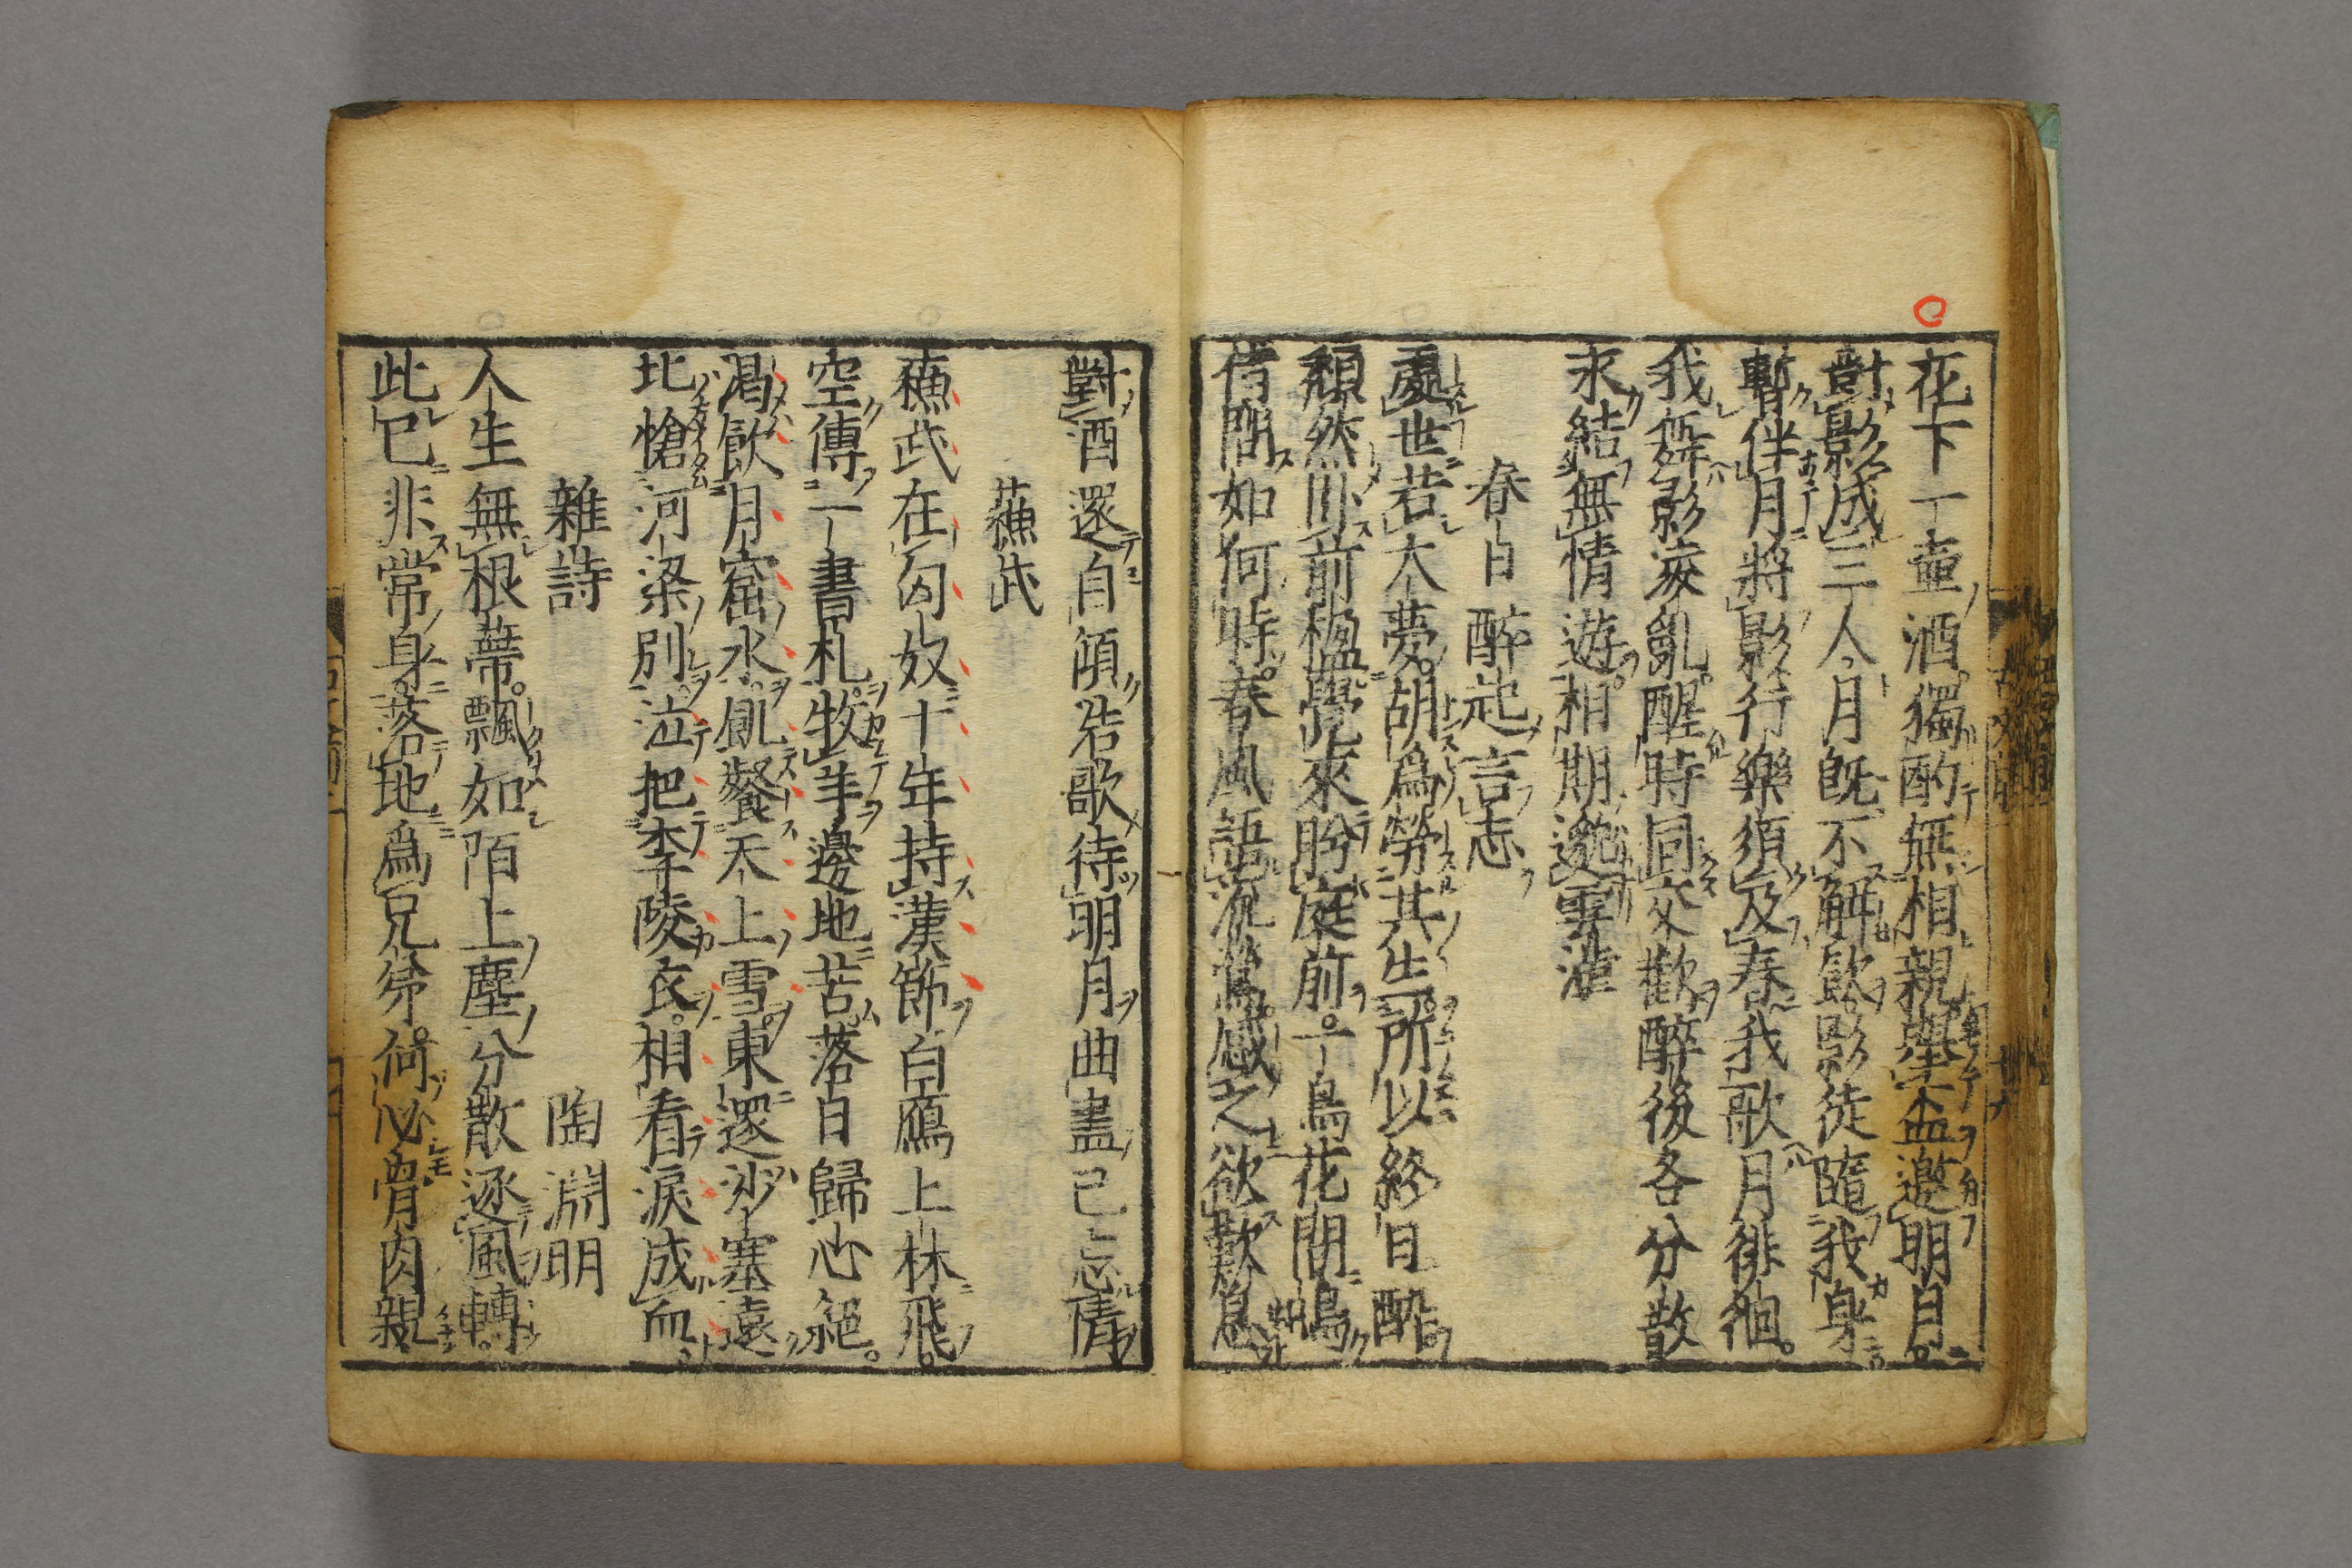 花下一壷酒。獨酌無相親。舉盃邀明月。
對影成三人。月既不解飲。影徒隨我身
暫伴月將影。行樂須及春。我歌月徘徊。
我舞影凌亂。醒時同交歡。醉後各分散
永結無情遊。相期邈雲漢
春日醉起言志
處世若大夢。胡為勞其生。所以終日醉。
頹然臥前楹。覺來盼庭前。一鳥花間鳴
借問如何時。春風語流鶯。感之欲歎息
對酒還自傾。浩歌待明月。曲盡已忘情
蘓武
蘓武在匈奴。十年持漢節。白鴈上林飛。
空傳一書札。牧羊邊地苦。落日歸心絕。
渴飲月窟水。飢餐天上雪。東還沙塞遠
北愴河梁別。泣把李陵衣。相看淚成血
雜詩 陶淵明
人生無根蔕。飄如陌上塵。分散逐風轉。
此已非常身。落地為兄弟。何必骨肉親